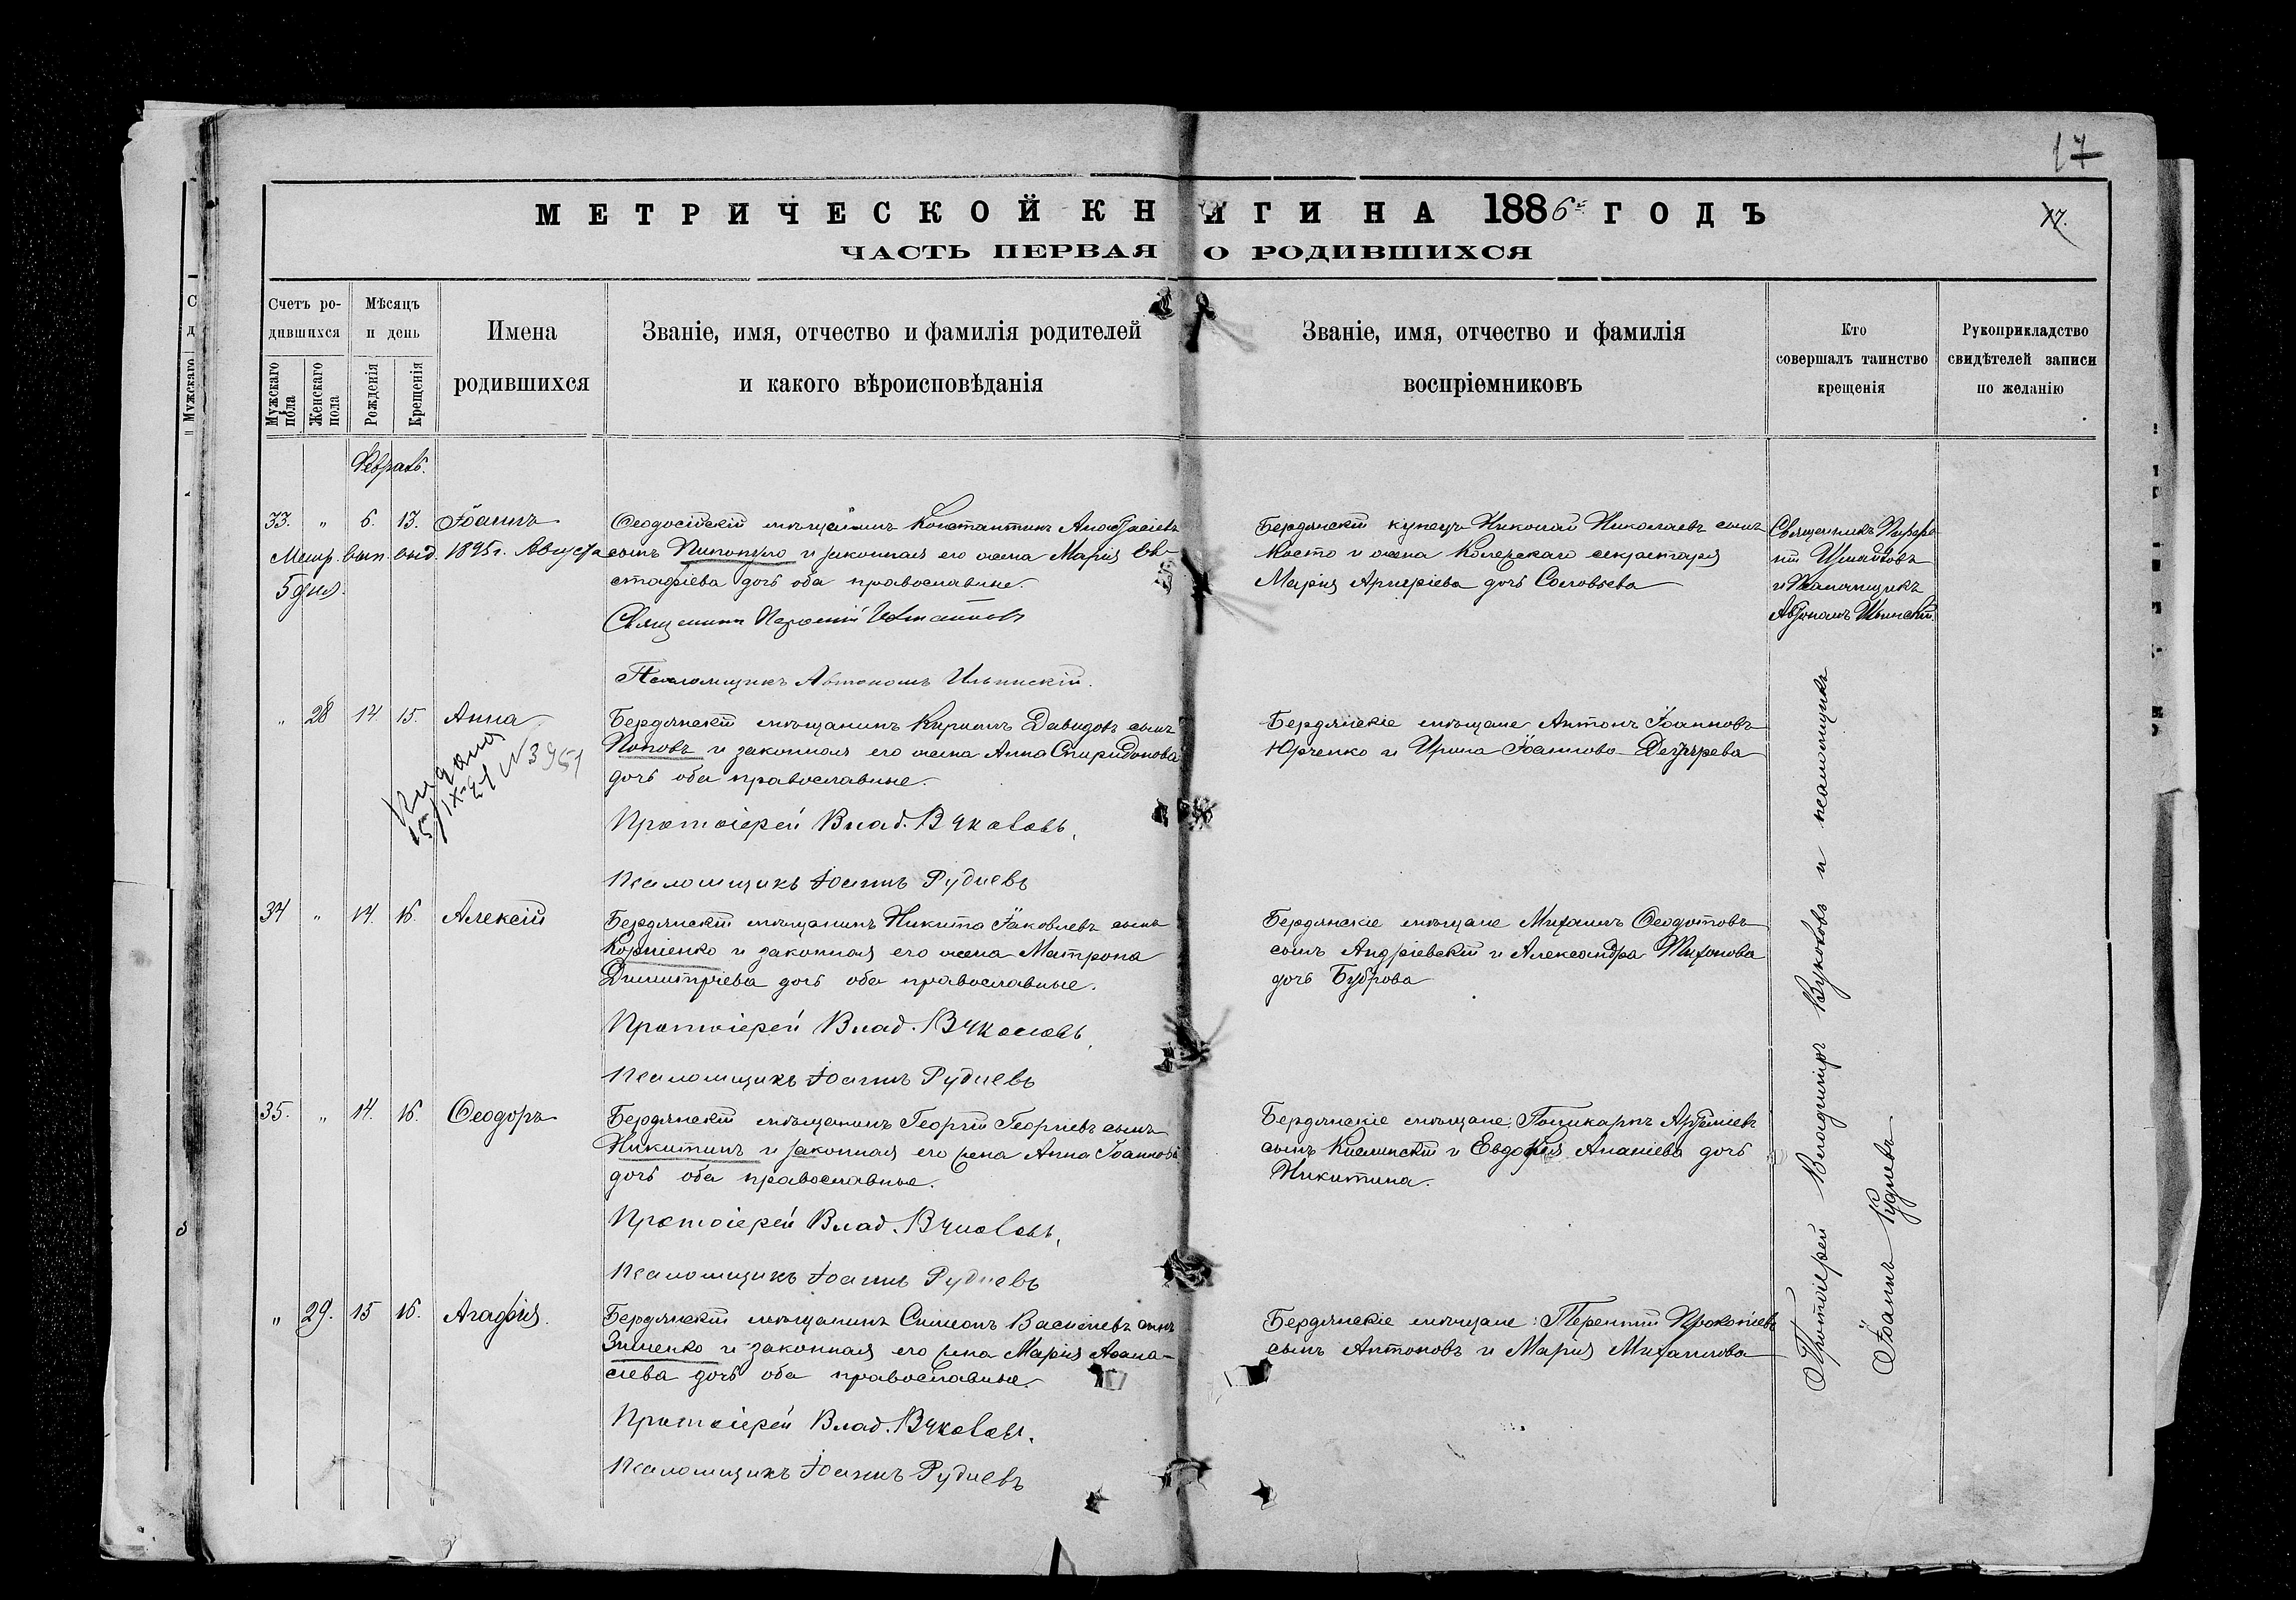 17
МЕТРИЧЕСКОЙ КНИГИ НА 1886й ГОДЪ
17.
ЧАСТЬ ПЕРВАЯ О РОДИВШИХСЯ
Счетъ ро-
дившихся
Мужскаго пола
Женскаго пола
Мѣсяцъ
и день
Рожденія
Крещенія
Имена
родившихся
Званіе, имя, отчество и фамилія родителей
и какого вѣроисповѣданія
Званіе, имя, отчество и фамилія
воспріемниковъ
Кто
совершалъ таинство
крещенія
Рукоприкладство
свидѣтелей записи
по желанію
Февраль.
33. " 6. 13. Іоаннъ
Метр. вып. выд. 1895 г. Августа
5 дня.
Ѳеодосійскій мѣщанинъ Константинъ Анастасіевъ
сынъ и законная его жена Марія Ев-
стафіева дочь оба православные.
Священникъ
Псаломщикъ Автономъ Ильинскій.
Бердянскій купецъ Николай Николаевъ сынъ
Косто и жена Колежскаго секретаря
Марія дочь Соловьева
Священникъ
и Псаломщикъ
Автономъ Ильинскій.
" 28 14. 15. Анна
Видана
15/IX-21 N 3951
Бердянскій мѣщанинъ Кириллъ Давидовъ сынъ
Поповъ и законная его жена Анна Спиридонова
дочь оба православные.
Протоіерей Влад. Вуколовъ.
Псаломщикъ Іоаннъ Рудневъ
Бердянскіе мѣщане Антонъ Іоанновъ
Юрченко и Ирина Іоаннова Дегтярева
34 " 14. 16. Алексій
Бердянскій мѣщанинъ Никита Іаковлевъ сынъ
Корніенко и законная его жена Матрона
Димитріева дочь оба православные.
Протоіерей Влад. Вуколовъ.
Псаломщикъ Іоаннъ Рудневъ
Бердянскіе мѣщане Михаилъ Ѳеодотовъ
сынъ Андріевскій и Александра Тихонова
дочь Бугрова
35. " 14. 16. Ѳеодоръ
Бердянскій мѣщанинъ Георгій Георгіевъ сынъ
Никитинъ и законная его жена Анна Іоаннова
дочь оба православные.
Протоіерей Влад. Вуколовъ.
Псаломщикъ Іоаннъ Рудневъ
Бердянскіе мѣщане: Поликарпъ Артеміевъ
сынъ и Евдокія Ананіева дочь
Никитина.
" 29. 15 16. Агафія.
Бердянскій мѣщанинъ Симеонъ Васильевъ сынъ
Зинченко и законная его жена Марія Аѳана-
сіева дочь оба православные.
Протоіерей Влад. Вуколовъ.
Псаломщикъ Іоаннъ Рудневъ
Бердянскіе мѣщане: Терентій Прокопіевъ
сынъ Антоновъ и Марія Михаилова
Протоіерей Владиміръ Вуколовъ и псаломщикъ
Іоаннъ Рудневъ
С
д
Мужскаго